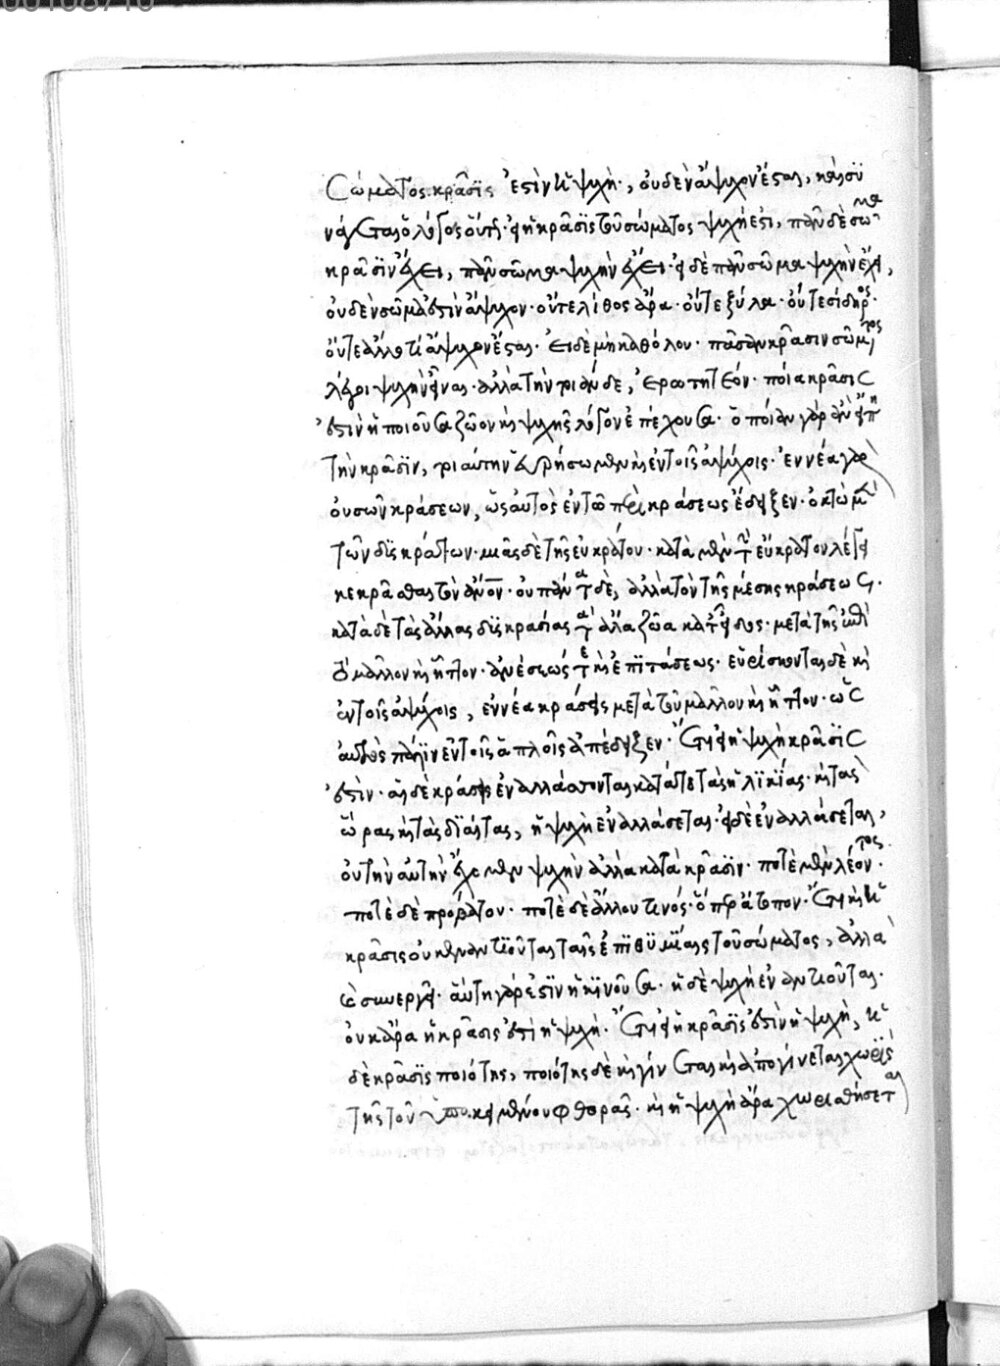 00108710
σώματος κράσις ἐστὶν ἡ ψυχὴ, οὐδὲν ἄψυχον ἔσται, καὶ συ
νάγεται ὁ λόγος οὕτως· εἰ ἡ κράσις τοῦ σώματος ψυχή ἐστι, πᾶν δὲ σῶμα
κράσιν ἔχει, πᾶν σῶμα ψυχὴν ἔχει· εἰ δὲ πᾶν σῶμα ψυχὴν ἔχει,
οὐδὲν σῶμα ἐστὶν ἄψυχον· οὔτε λίθος ἄρα· οὔτε ξύλα· οὔτε σίδηρος·
οὔτε ἄλλο τι ἄψυχον ἔσται· εἰ δὲ μὴ καθόλου· πᾶσαν κρᾶσιν σώματος
λέγει ψυχὴν εἶναι· ἀλλὰ τὴν τοιάνδε, ἐρωτητέον· ποία κρᾶσις
ἐστὶν ἡ ποιοῦσα ζῶον καὶ ψυχῆς λόγον ἐπέχουσα· ὁποίαν γὰρ ἂν εἴπῃ
τὴν κρᾶσιν, τοιαύτην εὑρήσωμεν καὶ ἐν τοῖς ἀψύχοις· ἐννέα γὰρ
οὐσῶν κράσεων, ὡς αὐτὸς ἐν τῶ περὶ κράσεως ἔδειξεν· ὀκτὼ μὲν
τῶν δισκράτων· μιᾶς δὲ τῆς εὐκράτου· κατὰ μὲν τὴν εὔκρατον λέγει
κεκρᾶσθαι τὸν ἄνον· οὐ πάντα δὲ, ἀλλὰ τὸν τῆς μέσης κράσεως·
κατὰ δὲ τὰς ἄλλας δισκρασίας τὰ ἄλλα ζῶα κατ' εἶδος· μετὰ τῆς ἐπὶ
τὸ μᾶλλον καὶ ἧττον· ἀνέσεώς τε καὶ ἐπιτάσεως· εὑρίσκονται δὲ καὶ
ἐν τοῖς ἀψύχοις, ἐννέα κράσεις μετὰ τοῦ μᾶλλον καὶ ἧττον· ὡς
αὐτὸς πάλιν ἐν τοῖς ἁπλοῖς ἀπέδειξεν· ἔτι εἰ ἡ ψυχὴ κράσις
ἐστὶν· αἱ δὲ κράσεις ἐναλλάσσονται κατά τε τὰς ἡλικίας· καὶ τὰς
ὥρας καὶ τὰς διαίτας, ἡ ψυχὴ ἐναλλάσεται· εἰ δὲ ἐναλλάσεται,
οὐ τὴν αὐτὴν ἔχομεν ψυχὴν ἀλλὰ κατὰ κρᾶσιν· ποτὲ μὲν λέοντος·
ποτὲ δὲ προβάτου· ποτὲ δὲ ἄλλου τινός· ὅπερ ἄτοπον· ἔτι καὶ ἡ
κρᾶσις οὐκ ἐναντιοῦται ταῖς ἐπιθυμίαις τοῦ σώματος, ἀλλὰ
καὶ συνεργεῖ· αὕτη γάρ ἐστιν ἡ κινοῦσα· ἡ δὲ ψυχὴ ἐναντιοῦται·
οὐκ ἄρα ἡ κρᾶσις ἐστὶ ἡ ψυχή· ἔτι εἰ ἡ κράσις ἐστὶν ἡ ψυχὴ, ἡ
δὲ κράσις ποιότης, ποιότης δὲ καὶ γίνεται καὶ ἀπογίνεται χωρὶς
τῆς τοῦ ὑποκειμένου φθορᾶς· καὶ ἡ ψυχὴ ἄρα χωρισθήσεται